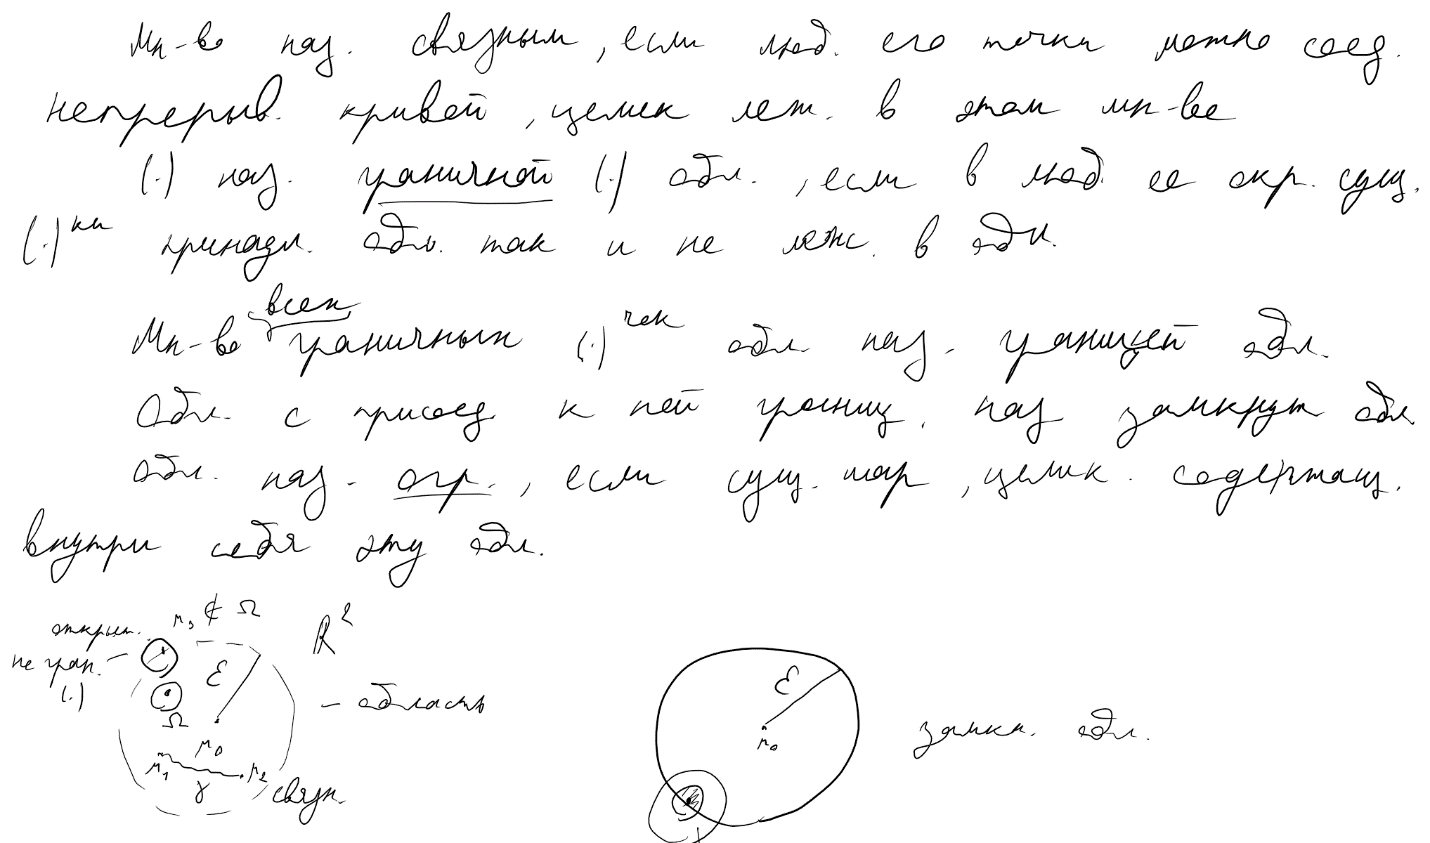 Мн-во наз. связным, если люб. его точки можно соед.
непрерыв. кривой, целик леж. в этом мн-ве
(.) наз. граничной (.) обл., если в люб. ее окр. сущ.
(.)ки принадл. обл. так и не леж. в обл.
Мн-во всех граничных (.)чек обл. наз. границей обл.
Обл. с присоед к ней границ. наз замкнут обл
Обл. наз. огр., если сущ. шар, целик. содержащ.
внутри себя эту обл.
M₃ ∉ Ω
R²
открыт.
не гран.
(.)
ε
Ω
M₀
M₁
M₂
γ
связн.
- область
ε
M₀
замкн. обл.